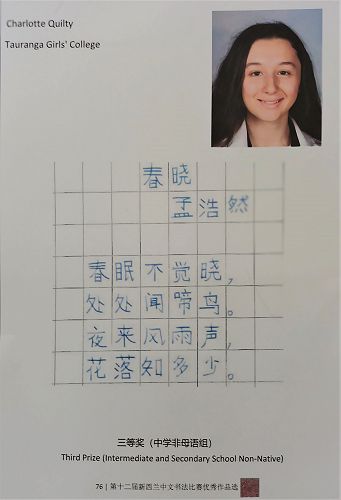 Charlotte Quilty
Tauranga Girls' College
春晓
孟浩然
春眠不觉晓，
处处闻啼鸟。
夜来风雨声，
花落知多少。
三等奖（中学非母语组）
Third Prize (Intermediate and Secondary School Non-Native)
76 | 第十二届新西兰中文书法比赛优秀作品选